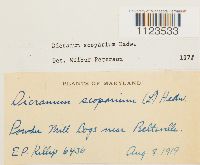 1123533
Dicranum scoparium Hedw.
Det. Wilbur Peterson 1978
PLANTS OF MARYLAND
Dicranum scoparium (L) Hedw.
Powder Mill Bogs near Beltsville.
E.P. Killip 6436 Aug. 9 1919